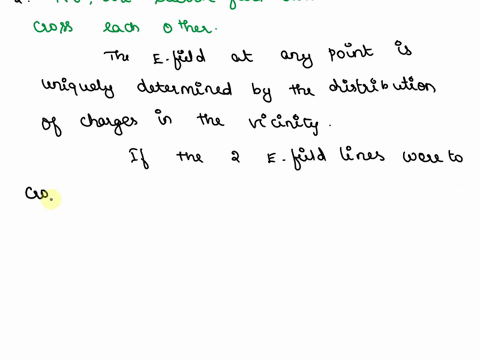 cross each other.
The E.field at any point is
uniquely determined by the distribution
of charges in the vicinity.
If the 2 E.field lines were to
cro